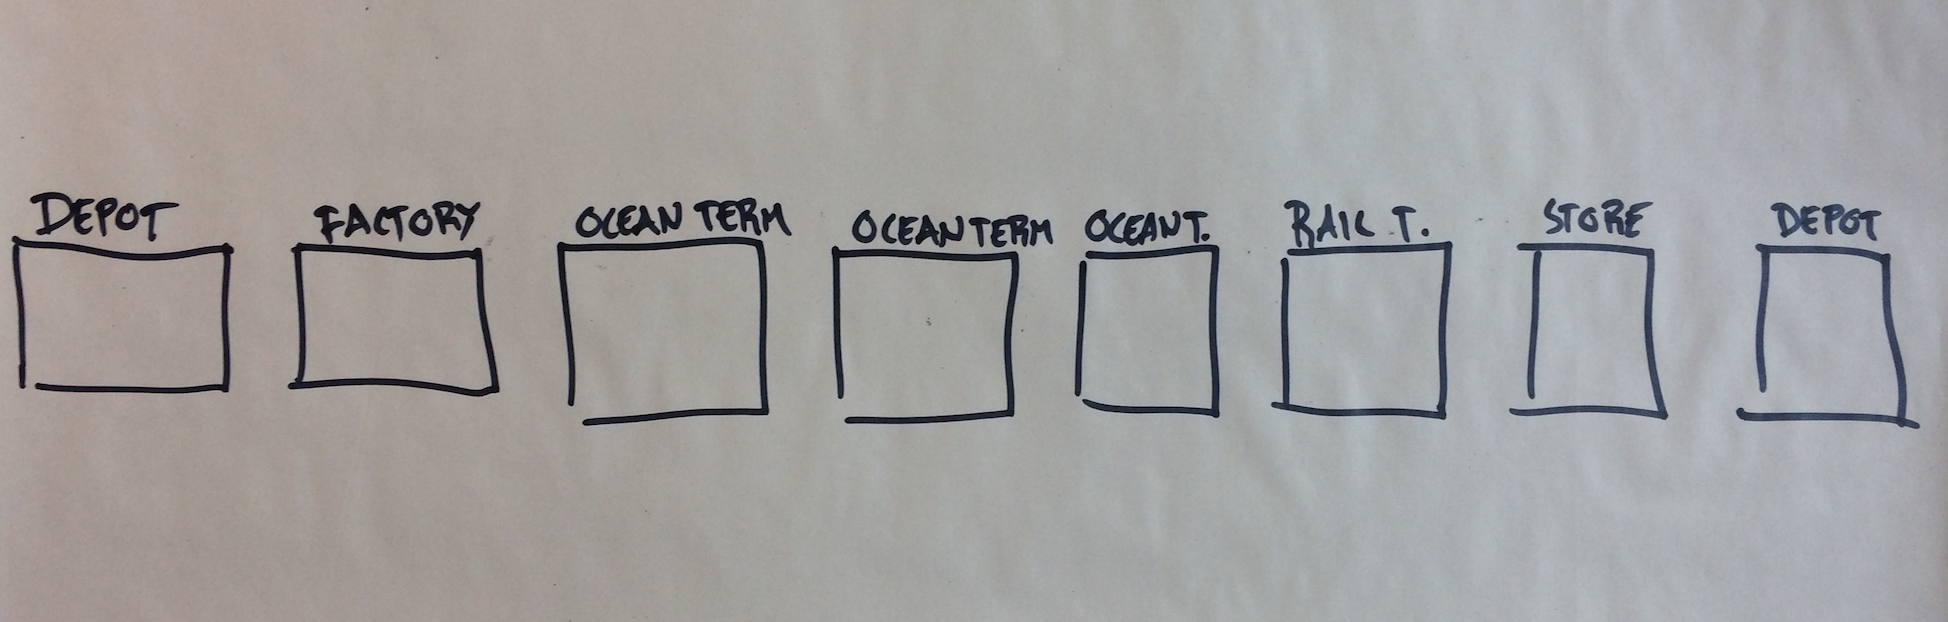 DEPOT FACTORY OCEAN TERM OCEAN TERM OCEAN T. RAIL T. STORE DEPOT